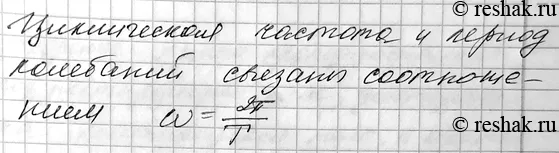 reshak.ru
Циклическая частота и период
колебаний связаны соотноше-
нием ω = 2π/T
reshak.ru